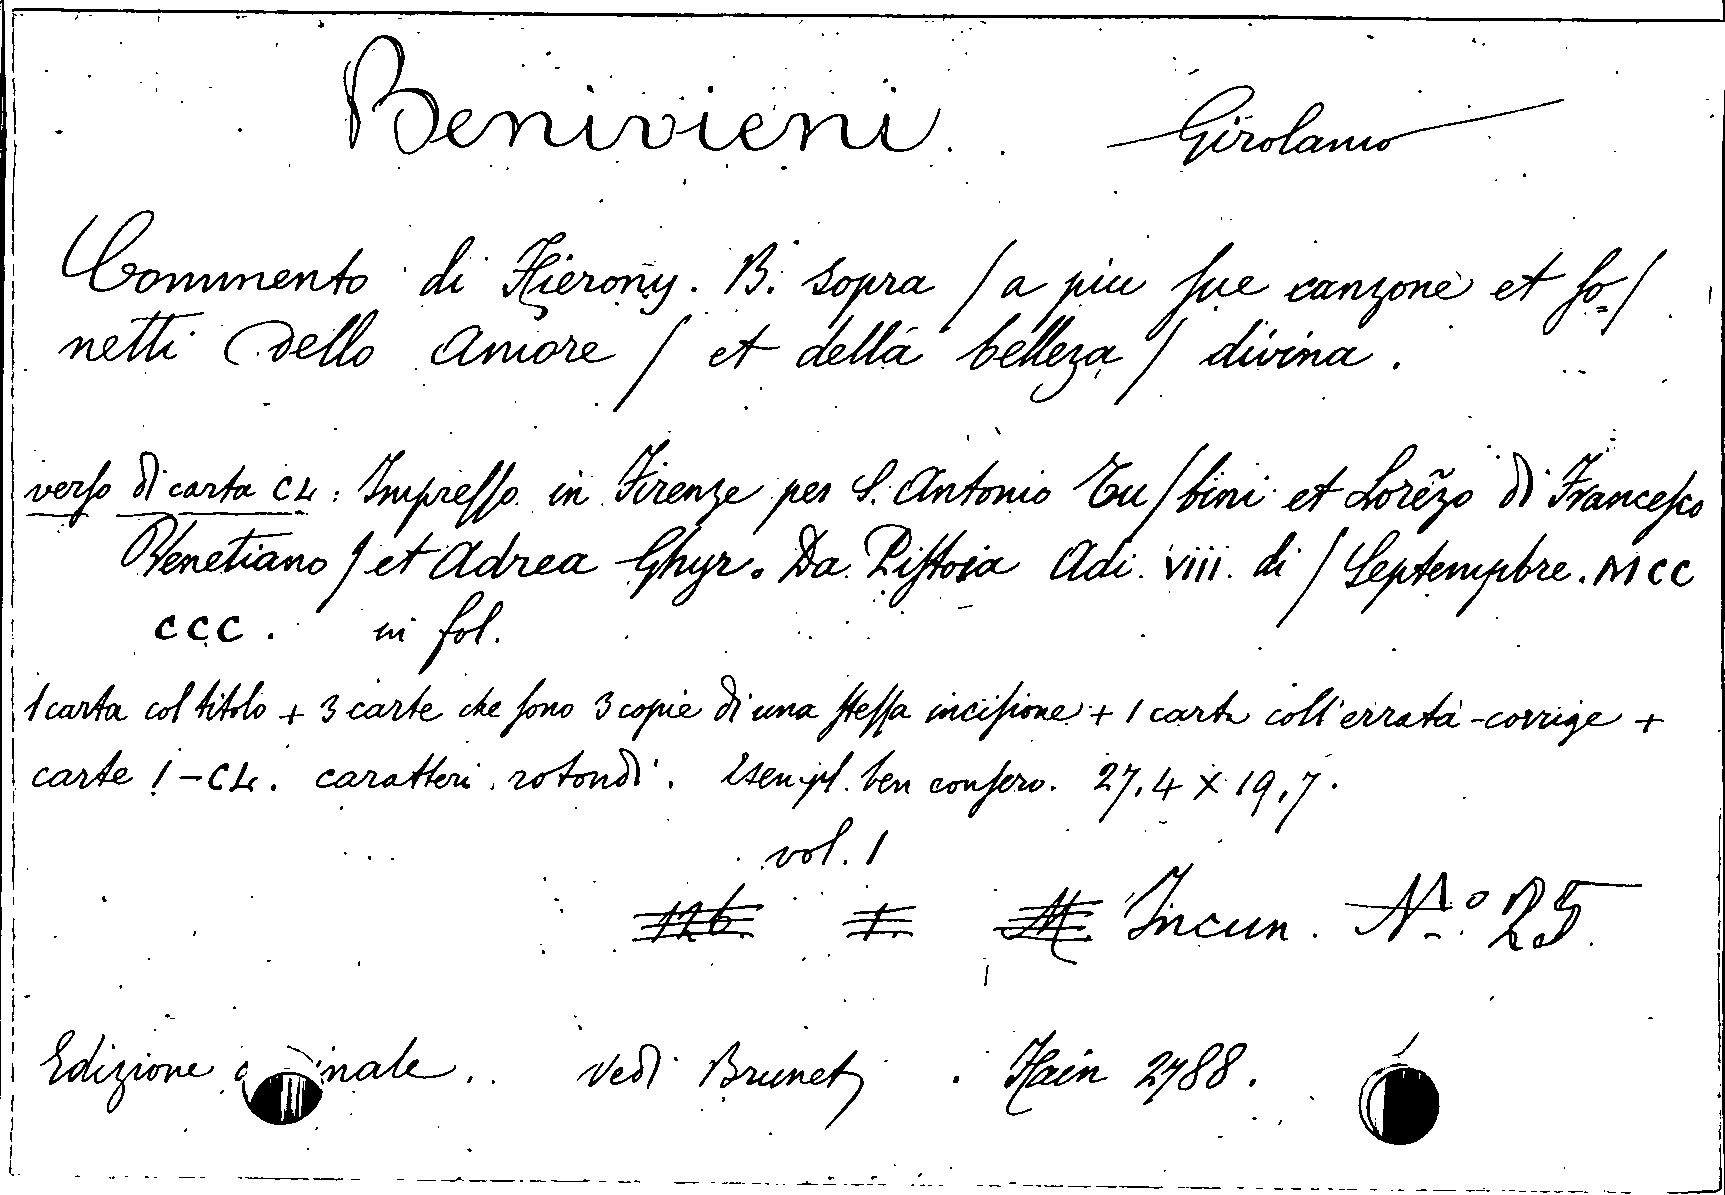 Benivieni. Girolamo
Commento di Hierony. B. sopra / a piu ſue canzone et ſo-/
netti dello Amore / et della belleza / divina.
verſo di carta CL: Impreſſo in Firenze per S. Antonio Tu/bini et Lorẽzo di Franceſco
Venetiano / et Adrea Ghyr. Da Piſtoia Adi. viii. di / Septempbre. MCC
CCC. in fol.
1 carta col titolo + 3 carte che ſono 3 copie di una ſteſſa inciſione + 1 carta coll'errata-corrige +
carte 1-CL. caratteri rotondi. Esempl. ben conſerv. 27,4 x 19,7.
vol. 1
126 1. M Incun. N.º 25
Edizione nale.. vedi Brunet . Hain 2788.